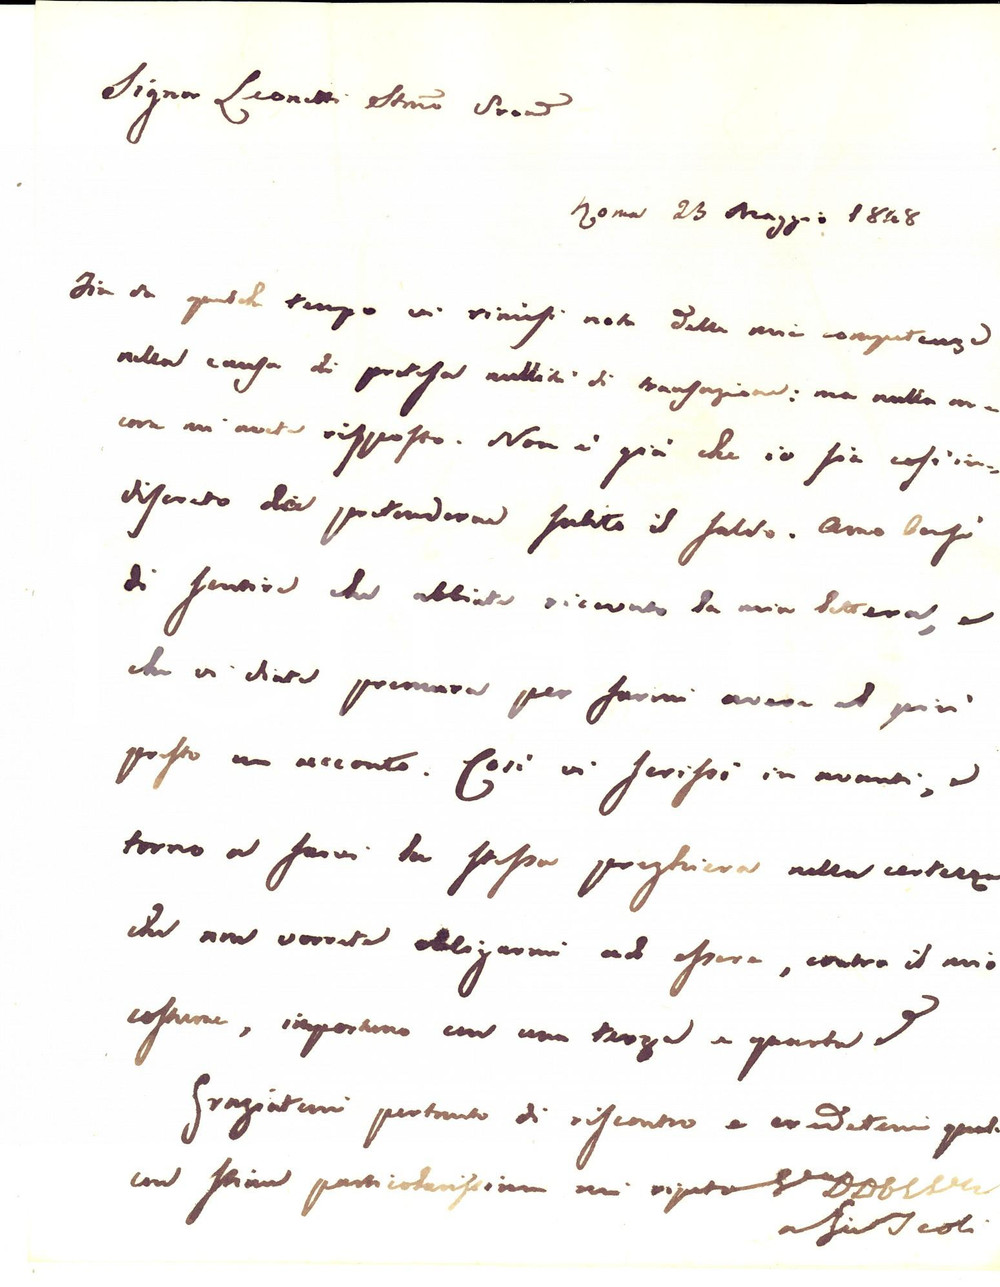 Signor Leonetti Stmo
Roma 23 Maggio 1848
Fin da qualche tempo vi rimisi nota delle mie competenze
nella causa di pretesa nullità di transazione: ma nulla an-
cora mi avete risposto. Non è già che io sia così in-
discreto da pretenderne subito il saldo. Amo bensì
di sentire che abbiate ricevuto la mia lettera, e
che vi diate premura per farmi avere al più
presto un acconto. Così vi scrissi in avanti, e
torno a farvi la stessa preghiera nella certezza
che non vorrete obbligarmi ad essere, contro il mio
costume, importuno con una terza e quarta
Graziatemi pertanto di riscontro e credetemi quale
con stima particolarissima mi ripeto